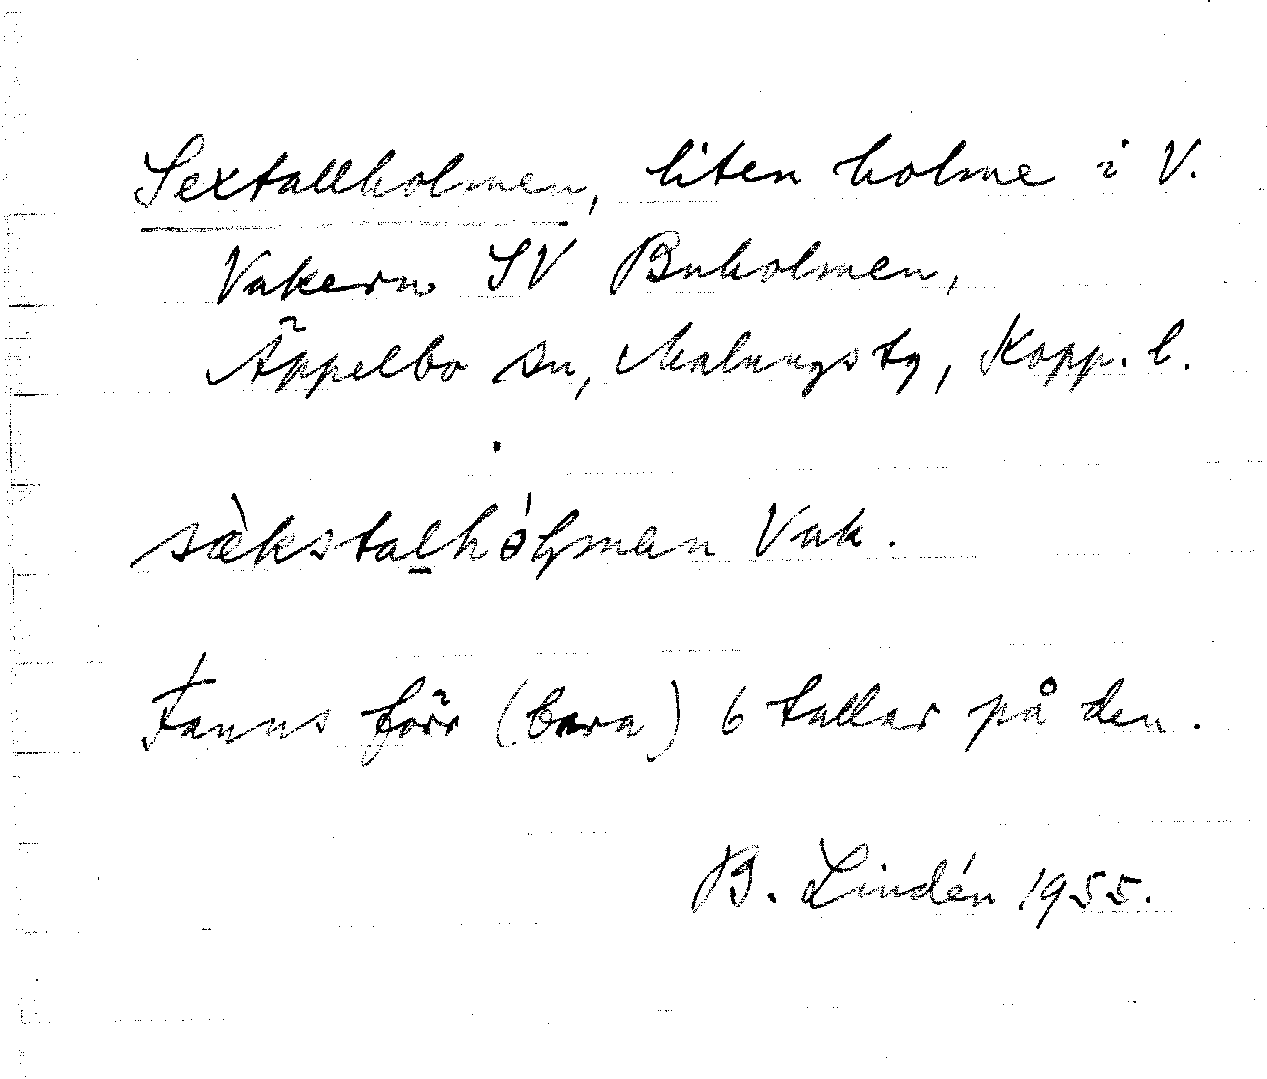 Sextallholmen, liten holme i V.
Vakern SV Buholmen,
Äppelbo sn, Malungs tg, Kopp. l.
Vak.
Fanns förr (bara) 6 tallar på den.
B. Lindén 1955.